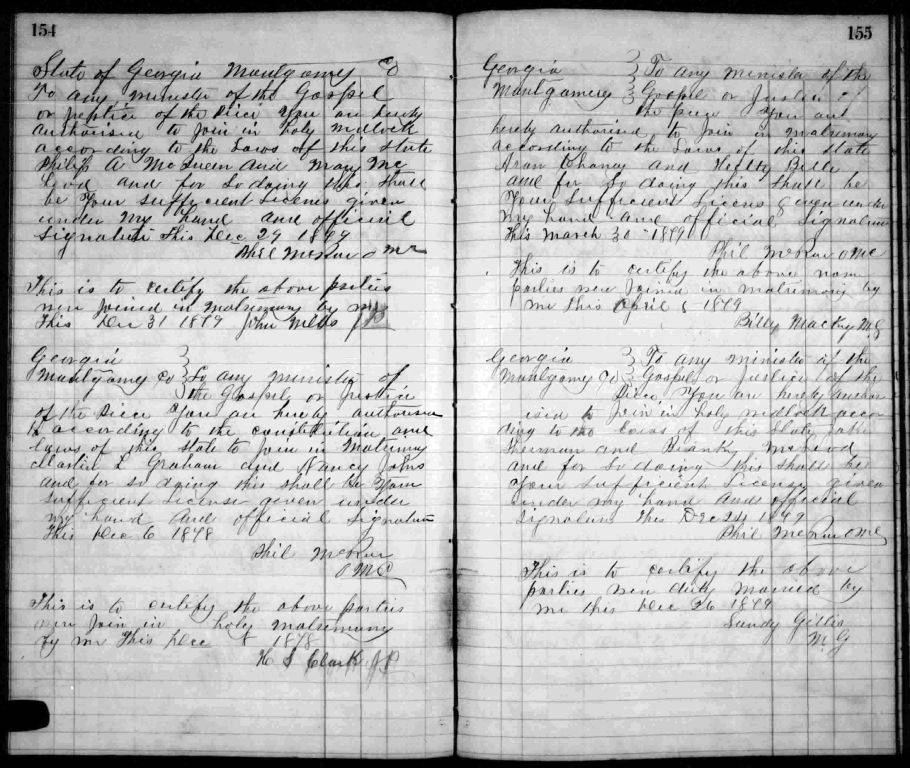 154
State of Georgia Montgomery Co
To any minister of the Gospel
or justice of the Piece You are hereby
authorised to Join in holy wedlock
according to the Laws of this State
Philip A McQueen and Mary Mc
Leod and for so doing this shall
be Your sufficient License given
under My hand and official
Signature This Dec 29 1879
Phil McRae
This is to certify the above parties
were Joined in matrimony by me
This Dec 31 1879 John
Georgia
Montgomery Co } To any minister of
the Gospel or Justice
of the Piece You are hereby authorised
to according to the constitution and
laws of this state to Join in Matrimony
Martin L Graham and Nancy
and for so doing this shall be Your
sufficient License given under
my hand and official Signature
This Dec 6 1878
Phil McRae
OMC
This is to certify the above parties
were Join in holy matrimony
by me This Dec 1878
H S Clark JP
155
Georgia } To any minister of the
Montgomery } Gospel or Justice of
the Piece You are
hereby authorised to Join in matrimony
according to the Laws of this State
and
and for so doing this shall be
Your sufficient License given under
My hand and official Signature
This March 30 1879
Phil McRae OMC
This is to certify the above nam
parties were Joined in matrimony by
me this April 1879
Billy MG
Georgia } To any minister of the
Montgomery Co } Gospel or Justice of the
Piece You are hereby author
ised to Join in holy wedlock accor
ding to the Laws of this State
Sherman and McLeod
and for so doing this shall be
Your sufficient License given
under my hand and official
Signature This Dec 24 1879
Phil McRae OMC
This is to certify the above
parties were duly Married by
me this Dec 26 1879
Sandy Gillis
M.G